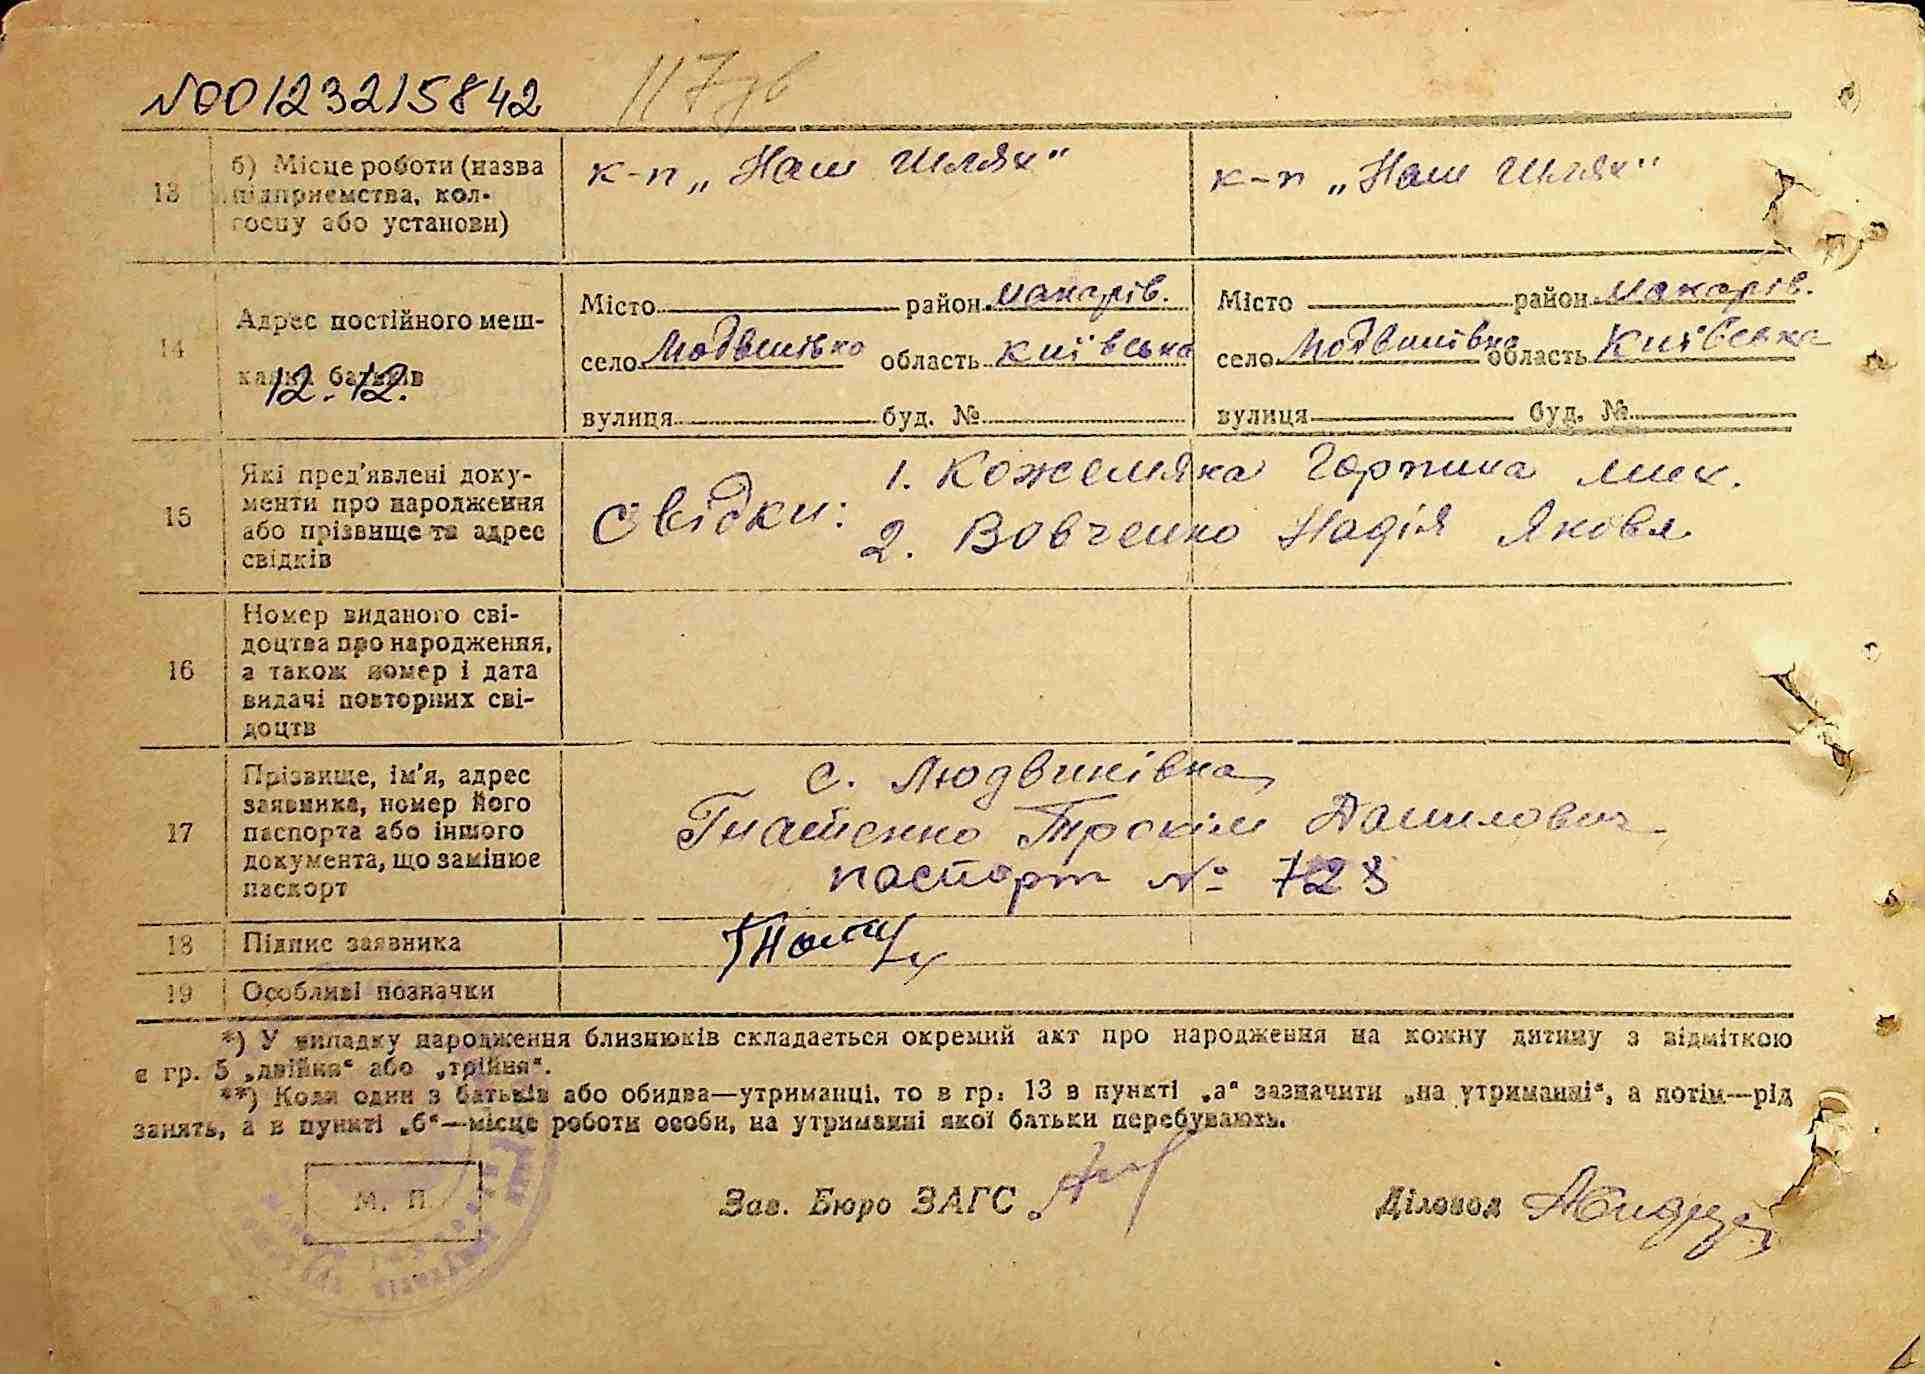 №00123215842 117зв
13 б) Місце роботи (назва підприємства, колгоспу або установи) к-п „Наш Шлях“ к-п „Наш Шлях“
14 Адрес постійного мешкання батьків
12.12.
Місто район Макарів. Місто район Макарів.
село Людвинівка область Київська село Людвинівка область Київська
вулиця буд. № вулиця буд. №
15 Які пред'явлені документи про народження або прізвище та адрес свідків
Свідки: 1. Кожемяка Горпина Мих.
2. Вовченко Надія Яковл
16 Номер виданого свідоцтва про народження, а також номер і дата видачі повторних свідоцтв
17 Прізвище, ім'я, адрес заявника, номер його паспорта або іншого документа, що замінює паспорт
с. Людвинівка,
Гнатенко Трохим Данилович
паспорт № 723
18 Підпис заявника
19 Особливі позначки
*) У випадку народження близнюків складається окремий акт про народження на кожну дитину з відміткою
в гр. 5 „двійня“ або „трійня“.
**) Коли один з батьків або обидва—утриманці, то в гр. 13 в пункті „а“ зазначити „на утриманні“, а потім—рід
занять, а в пункті „б“—місце роботи особи, на утриманні якої батьки перебувають.
М. П. Зав. Бюро ЗАГС Діловод